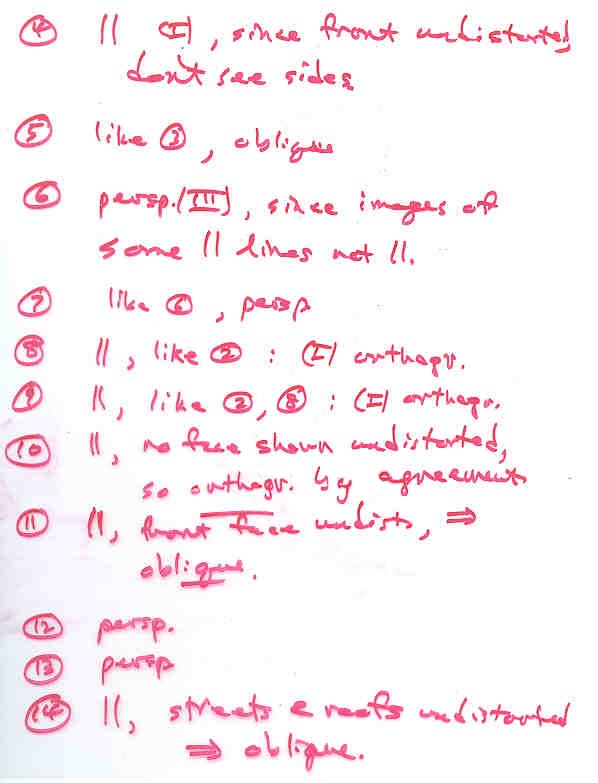 ④ || (I), since front undistorted,
don't see sides
⑤ like ③, oblique
⑥ persp. (III), since images of
some || lines not ||.
⑦ like ⑥, persp
⑧ ||, like ② : (I) orthogr.
⑨ ||, like ②, ⑧ : (I) orthogr.
⑩ ||, no face shown undistorted,
so orthogr. by agreement
⑪ ||, front face undist., ⇒
oblique.
⑫ persp.
⑬ persp
⑭ ||, streets & roofs undistorted
⇒ oblique.